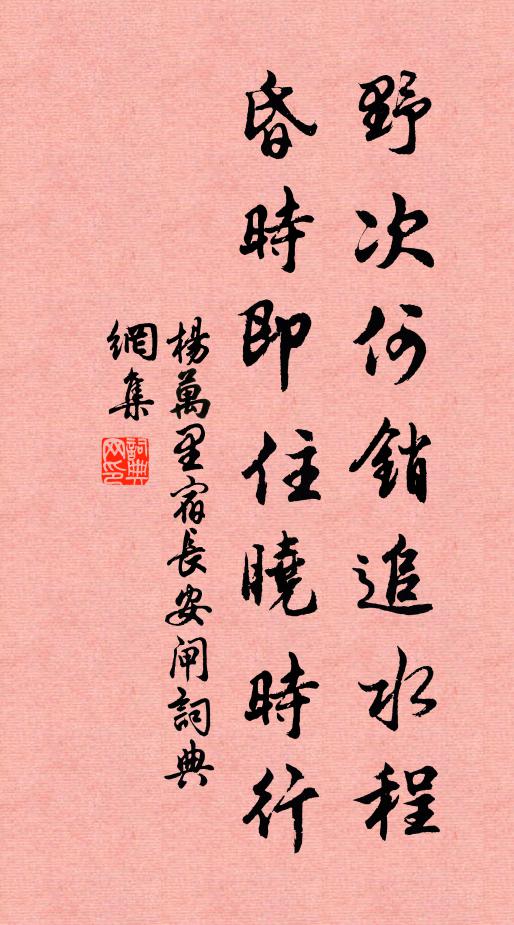 野次何銷追水程
昏時即住曉時行
楊萬里宿長安閘詞典
網集
詞典
网印